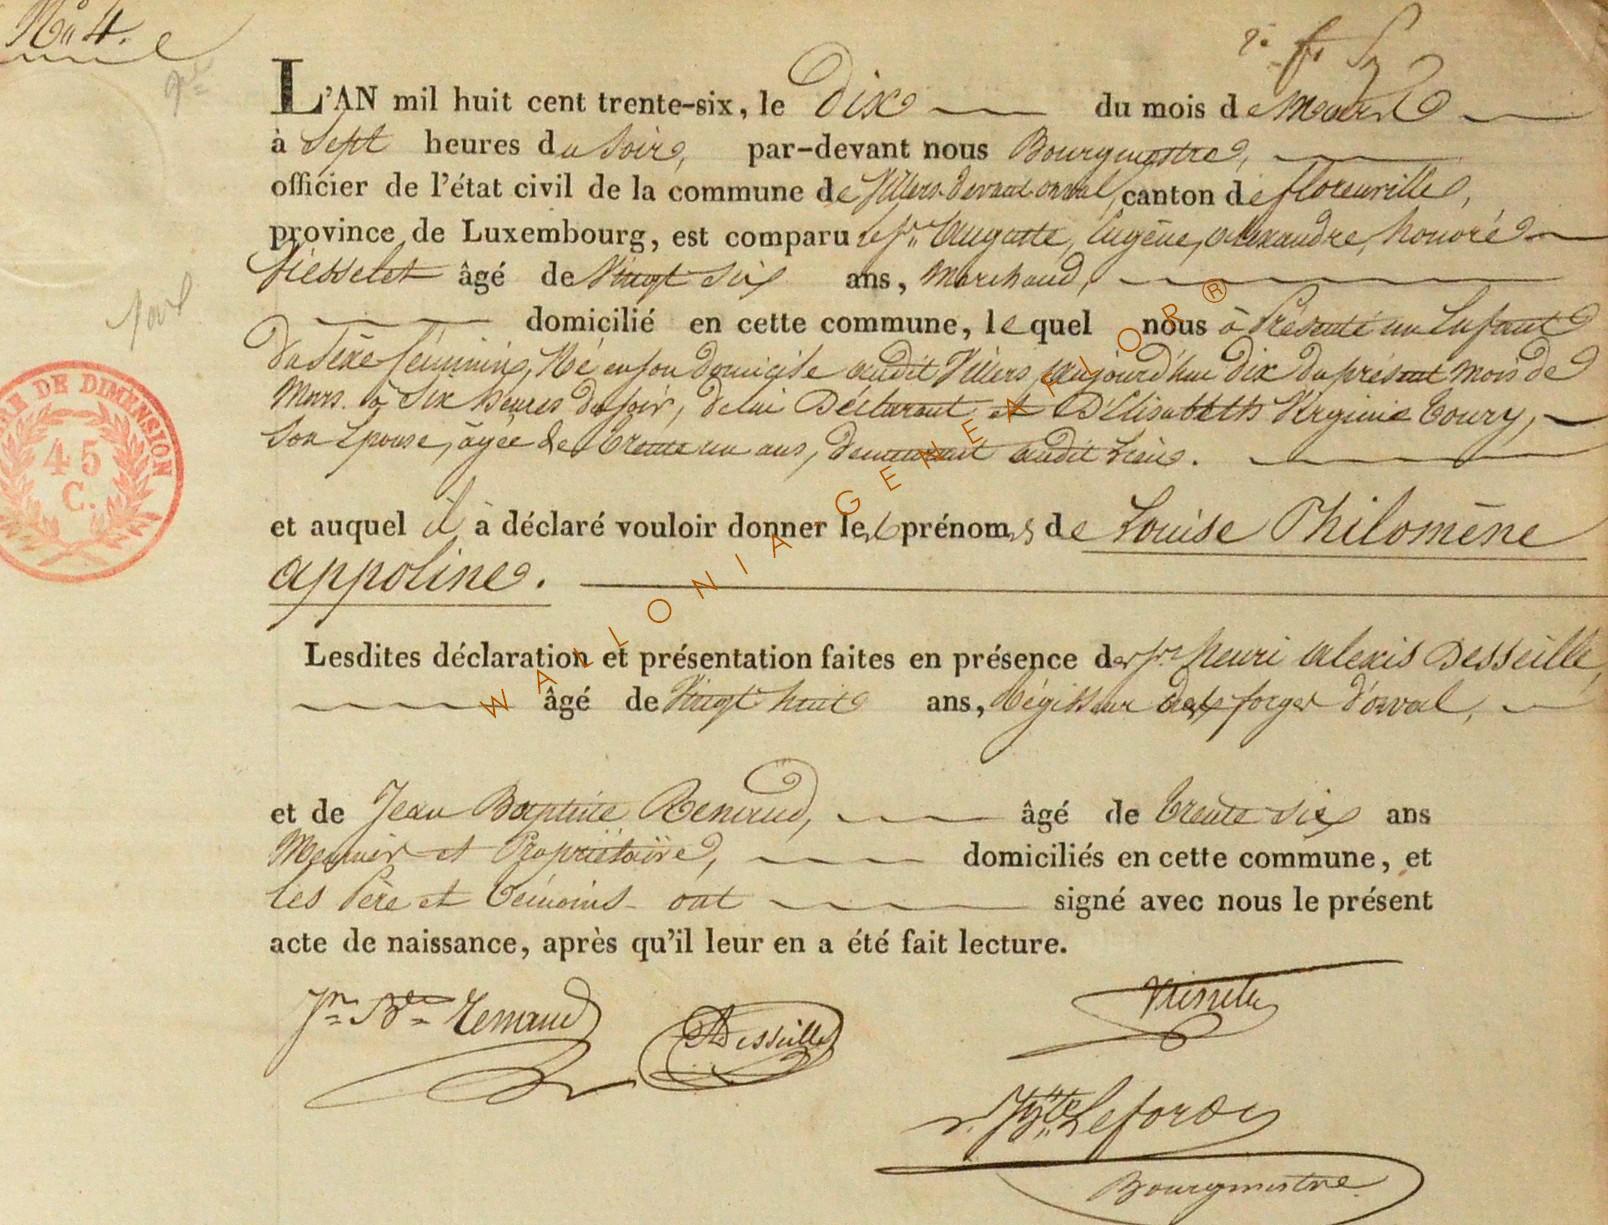 No 4.
L'AN mil huit cent trente-six, le Dix du mois de Mars
à Sept heures du Soir, par-devant nous Bourgmestre,
officier de l'état civil de la commune de Villers-devant-orval, canton de florenville,
province de Luxembourg, est comparu le sr. Auguste, Eugène, alexandre, honoré
âgé de Vingt Six ans, Marchand,
domicilié en cette commune, lequel nous à Présenté un Enfant
du Sèxe féminin, Né en son domicile audit Villers, aujourd'hui dix du présent mois de
Mars. à Six heures du soir, de lui Déclarant et D'Elisabeth Virginie Toury,
Son Epouse, âgée de Trente un ans, demeurant audit Lieu.
et auquel il à déclaré vouloir donner les prénoms de Louise Philomène
appoline.
Lesdites déclaration et présentation faites en présence des srs henri alexis Desseille,
âgé de Vingt huit ans, Régisseur des forges d'orval,
et de Jean Baptiste Renaud, âgé de Trente six ans
Meunier et Propriétaire, domiciliés en cette commune, et
les Père et Témoins ont signé avec nous le présent
acte de naissance, après qu'il leur en a été fait lecture.
Jn Bte Renaud
ADesseille
Lefort
Bourgmestre
DE DIMENSION
45
C.
WALLONIA - GENEAFLOR ®